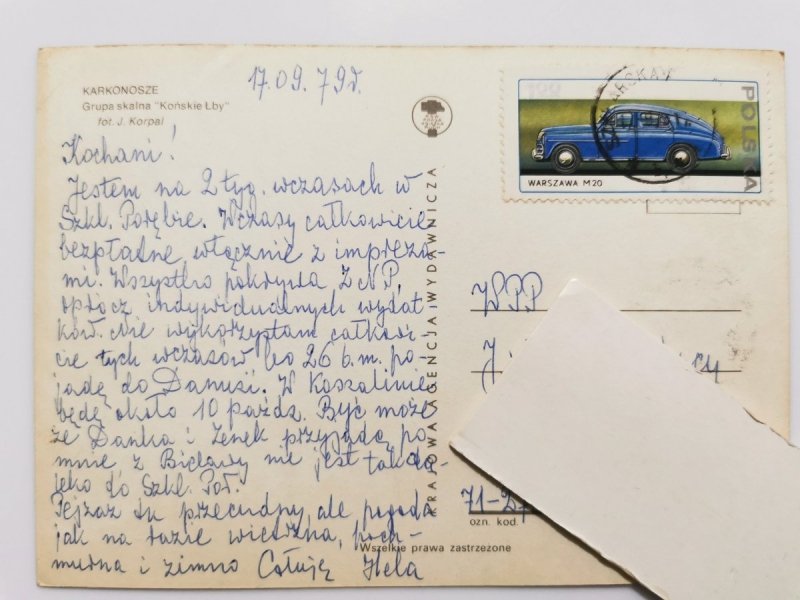 KARKONOSZE
Grupa skalna "Końskie Łby"
fot. J. Korpal
17.09.79r.
Kochani!
Jestem na 2 tyg. wczasach w
Szkl. Porębie. Wczasy całkowicie
bezpłatne włącznie z impreza-
mi. Wszystko pokrywa ZNP,
oprócz indywidualnych wydat
ków. Nie wykorzystam całkowi
cie tych wczasów bo 26 b.m. po-
jadę do Danusi. W Koszalinie
będę około 10 paźdz. Być może
że Danka i Zenek przyjadą po
mnie z Bielawy nie jest tak da
leko do Szkl. Por.
Pejzaż tu przecudny, ale pogoda
jak na razie wietrzna, poch-
murna i zimno Całuję Hela
KRAJOWA AGENCJA WYDAWNICZA
Wszelkie prawa zastrzeżone
100
POLSKA
WARSZAWA M 20
WPP
71-
ozn. kod.